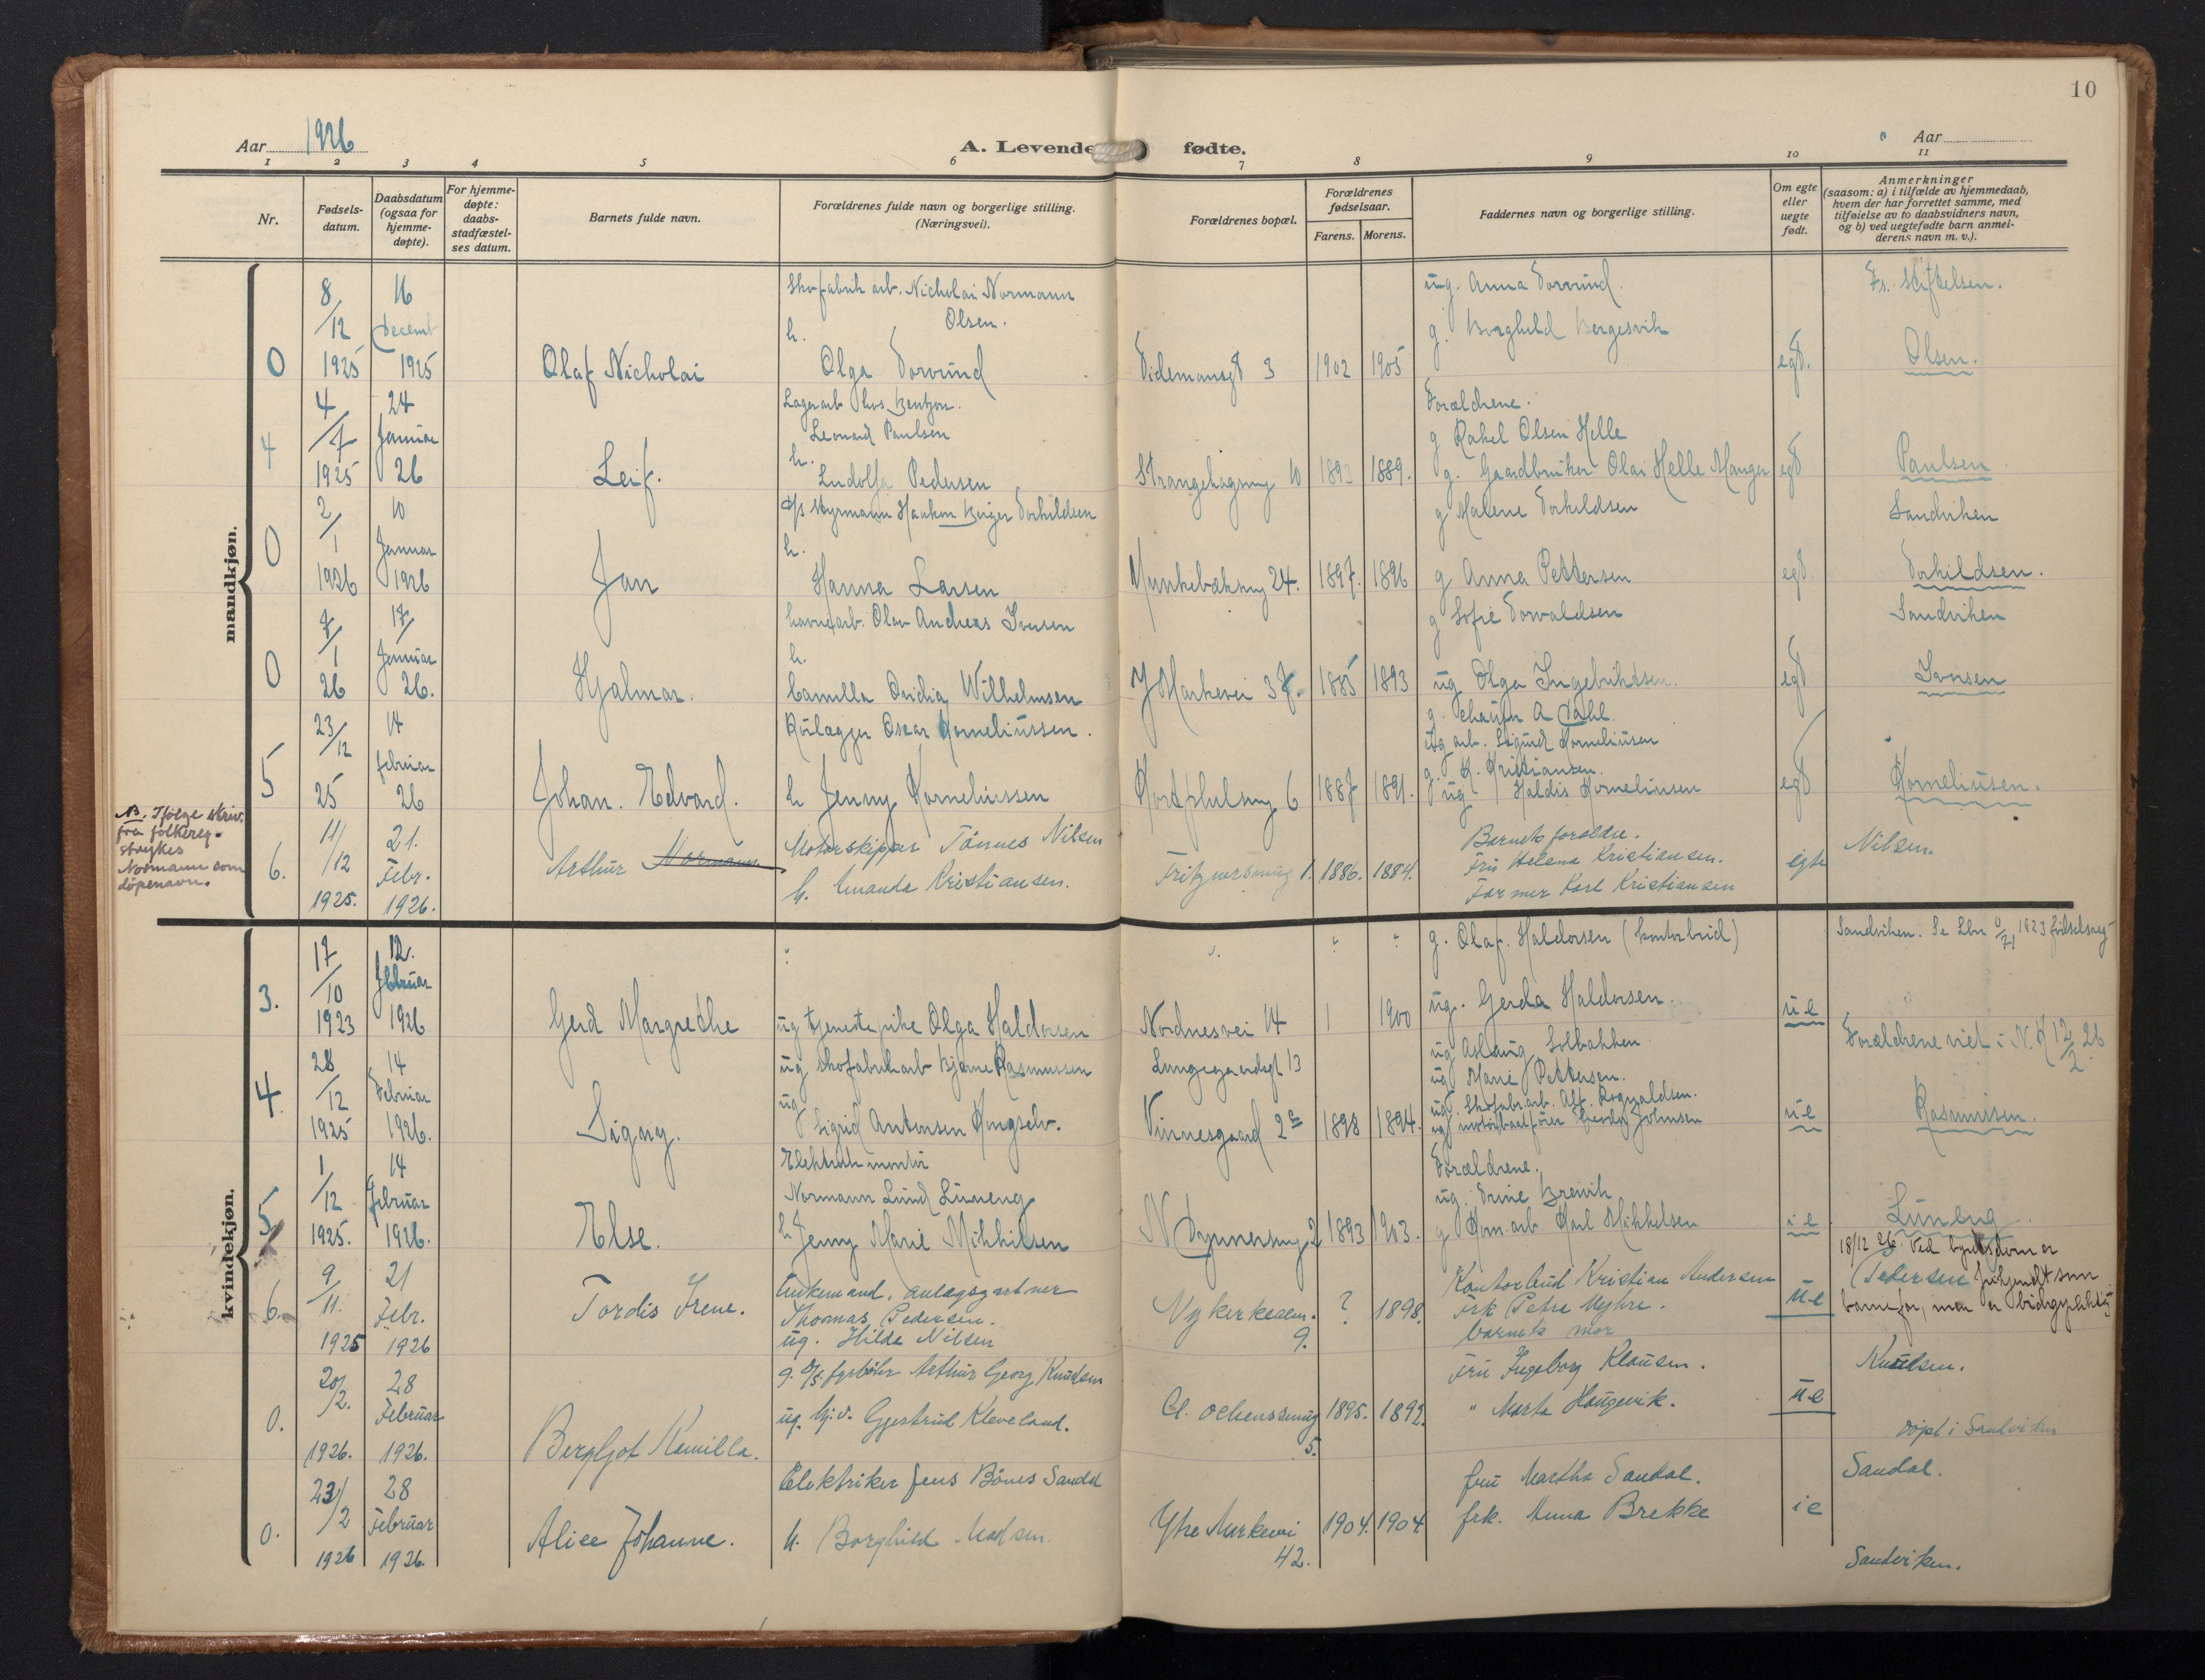 10
Aar 1926
A. Levende fødte.
Aar
1 2 3 4 5 6 7 8 9 10 11
Nr.
Fødsels-
datum.
Daabsdatum
(ogsaa for
hjemme-
døpte).
For hjemme-
døpte:
daabs-
stadfæstel-
ses datum.
Barnets fulde navn.
Forældrenes fulde navn og borgerlige stilling.
(Næringsvei).
Forældrenes bopæl.
Forældrenes
fødselsaar.
Farens. Morens.
Faddernes navn og borgerlige stilling.
Om egte
eller
uegte
født.
Anmerkninger
(saasom: a) i tilfælde av hjemmedaab,
hvem der har forrettet samme, med
tilføielse av to daabsvidners navn,
og b) ved uegtefødte barn anmel-
derens navn m. v.).
mandkjøn.
0
8/12
1925
16
Decemb
1925
Olaf Nicholai
Skofabrik arb. Nicholai Normann
Olsen.
h.
Olga Dorvund
Tidemansgt 3
1902 1905
ug. Anna Dorvund.
g Borghild Bergesvik
egt.
Fs. Stiftelsen.
Olsen.
4
4/7
1925
24
Januar
26
Leif.
Lagerarb hos Bentzon.
Leonard Paulsen
h.
Ludolfa Pedersen
Strangehagsmg 10
1893 1889.
Forældrene.
g Rakel Olsen Helle
g. Gaardbruker Olai Helle Manger
egt
Paulsen
0
2/1
1926
10
Januar
1926
Jan
d/s Styrmann Haakon Birger Torkildsen
h.
Hanna Larsen
Munkebæksmg 24.
1897. 1896
g Malene Torkildsen
g Anna Pettersen
egt
Sandviken
Torkildsen.
0
7/1
26
17/
Januar
26.
Hjalmar.
havnearb. Olav Andreas Iversen
h.
Camilla Ovidia Wilhelmsen
Y Markevei 37.
1885 1893
g Sofie Torvaldsen
ug Olga Ingebriktsen.
egt
Sandviken
Iversen
5
23/12
25
14
februar
26
Johan. Edvard.
Rørlægger Oscar Korneliussen.
h Jenny Korneliussen
6
1887 1891.
g. Chaufør A Dahl.
ug arb. Sigurd Korneliusen
g. K. Kristiansen.
ug Haldis Kornelinsen
egt
Korneliusen.
NB. Ifølge skriv.
fra folkereg.
strykes
Normann som
døpenavn.
6.
11/12
1925.
21.
Febr.
1926.
Arthur Normann
Motorskipper Tønnes Nilsen
h. Amanda Kristiansen.
Fritznersmug 1.
1886. 1884.
Barnets foreldre.
Fru Helena Kristiansen.
Farmer Karl Kristiansen
egte
Nilsen.
kvindekjøn.
3.
17/10
1923
12.
februar
1926
Gerd Margrethe
ug tjenestepike Olga Haldorsen
Nordnesvei 14
1900
g. Olaf. Haldorsen (kontorbud)
ug. Gerda Haldorsen.
u e
Sandviken. Se Lbn 1923 fødselsreg
4.
28/12
1925
14
Februar
1926.
Signy.
ug skofabrikarb Bjarne Rasmussen
ug
Sigrid Antonsen Kongselv.
Lungegaardsgt 13
Vinnesgaard 2
1898 1894.
ug Aslaug Solbakken
ug Marie Pettersen.
ug. Skofabr.arb. Alf. Rognaldsen.
ug motorbaatfører Johnsen
u e
Forældrene viet i N. K 12/2 26
Rasmussen.
5
1/12
1925.
14
februar
1926.
Else.
Elektrikmontør
Normann Lund Luneng
h Jenny Marie Mikkelsen
2
1893 1903.
Forældrene.
ug. Trine Brevik
g Kom. arb Karl Mikkelsen
i e
Luneng
6.
9/11.
1925
21
Febr.
1926
Tordis Irene.
Enkemand, anlægsgartner
Thomas Pedersen.
ug. Hilda Nilsen
Nykirkealm.
9.
? 1898.
Kontorbud Kristian Andersen
Frk Petra Myhre.
barnets mor
u-e
18/12 26. Ved byretsdom er
(Petersen frikjendt som
barnefar, men er bidragspliktig
0.
20/2.
1926.
28
Februar
1926.
Bergljot Kamilla.
g. D/S. fyrbøter Arthur Georg Knudsen
ug. hj.v. Gjertrud Kleveland.
Cl. Ockenssmug
5.
1895. 1892.
Fru Ingeborg Klausen.
" Marta Haugevik.
u-e
Knudsen.
døpt i Sandviken
0.
23/2
1926
28
Februar
1926.
Alice Johanne.
Elektriker Jens Bønes Sandal
h. Borghild Madsen.
Ytre Markevei
42.
1904. 1904.
fru Martha Sandal.
frk. Anna Brekke
i e
Sandal.
Sandviken.